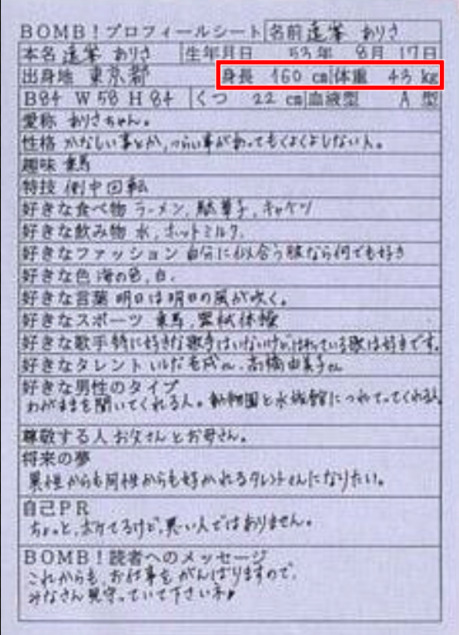 BOMB!プロフィールシート 名前 遠峯 ありさ
本名 遠峯 ありさ 生年月日 53年 8月 17日
出身地 東京都 身長 160 cm 体重 43 kg
B84 W58 H84 くつ 22 cm 血液型 A 型
愛称 ありさちゃん。
性格 かなしい事とか、つらい事があってもくよくよしない人。
趣味 乗馬
特技 側中回転
好きな食べ物 ラーメン、駄菓子、キャベツ
好きな飲み物 水、ホットミルク。
好きなファッション 自分に似合う服なら何でも好き
好きな色 海の色、白。
好きな言葉 明日は明日の風が吹く。
好きなスポーツ 乗馬、器械体操
好きな歌手 特に好きな歌手はいないけど、はやっている歌は好きです。
好きなタレント いしだ壱成さん、高橋由美子さん
好きな男性のタイプ
わがままを聞いてくれる人。動物園と水族館につれてってくれる人
尊敬する人 お父さんとお母さん。
将来の夢
異性からも同性からも好かれるタレントさんになりたい。
自己PR
ちょっと、ボケてるけど、悪い人ではありません。
BOMB!読者へのメッセージ
これからも、お仕事をがんばりますので、
みなさん見守っていて下さいネ♪